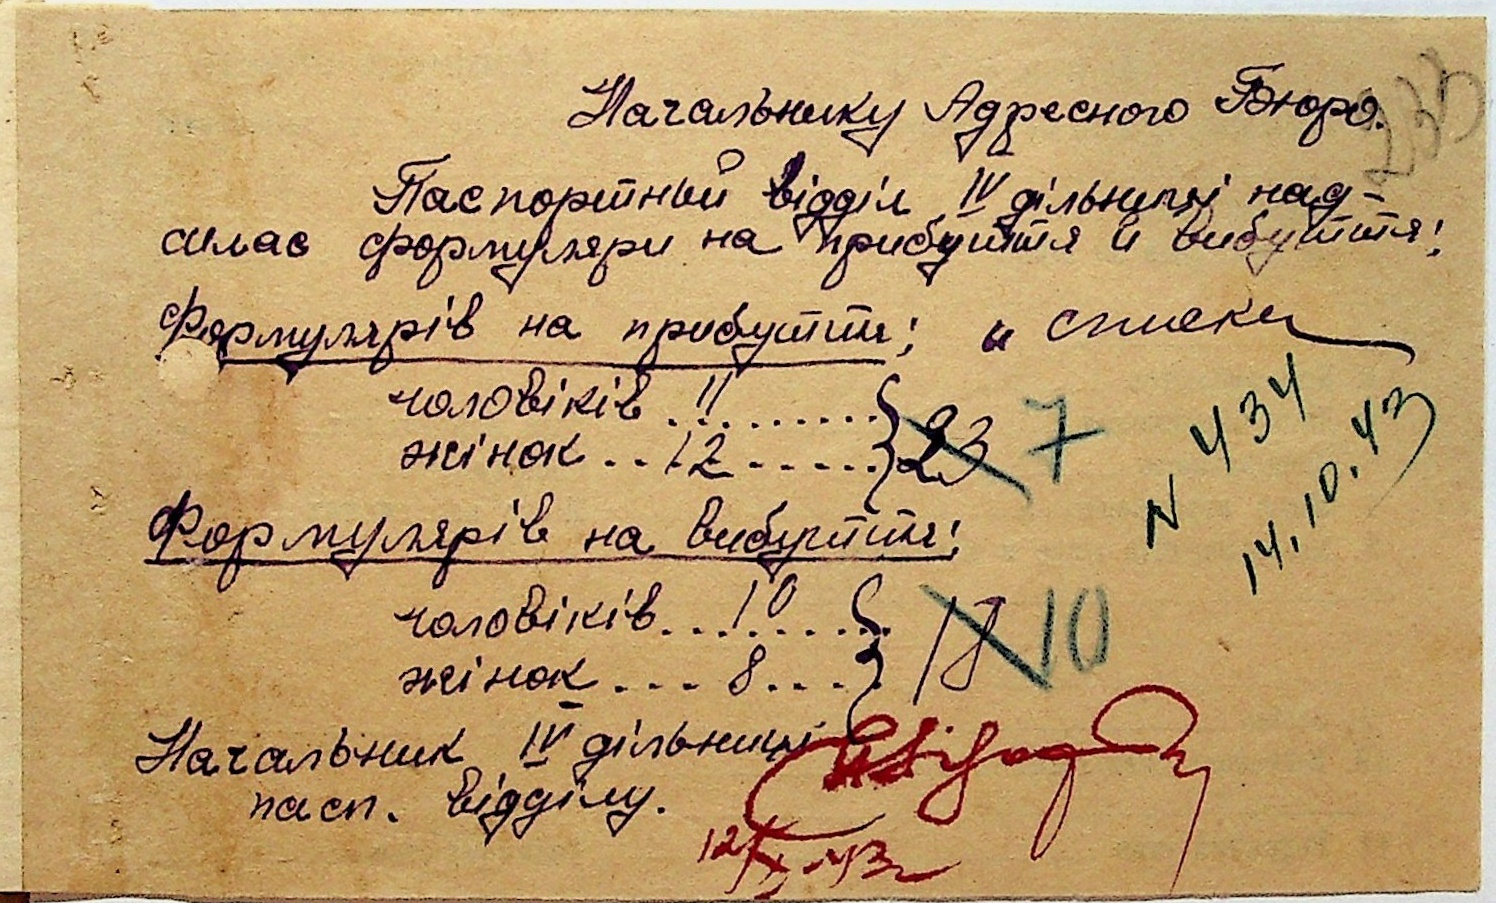 Начальнику Адресного Бюро.
233
Паспортный відділ IV дільниці над-
силає формуляри на прибуття и вибуття:
Формулярів на прибуття: и списки
чоловіків .. 11 ........
жінок .. 12 ...... } 23 7
N 434
14.10.43
Формулярів на вибуття:
чоловіків .... 10 ......
жінок .... 8 .... } 18 10
Начальник IV дільниці
пасп. відділу.
12/X-43